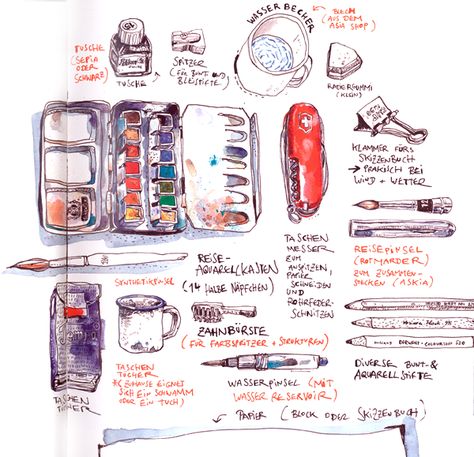 WASSERBECHER
BLECH
(AUS DEM
ASIA SHOP)
TUSCHE
(SEPIA
ODER
SCHWARZ)
TUSCHE
SPITZER
(FÜR BUNT- &
BLEISTIFTE)
RADIERGUMMI
(KLEIN)
KLAMMER FÜRS
SKIZZENBUCH
→ PRAKISCH BEI
WIND + WETTER
REISE-
AQUARELLKASTEN
(14 HALBE NÄPFCHEN)
TASCHEN
MESSER
ZUM
ANSPITZEN,
PAPIER
SCHNEIDEN
UND
ROHRFEDER-
SCHNITZEN
REISEPINSEL
(ROTMARDER)
ZUM ZUSAMMEN-
STECKEN (ASKIA)
SYNTHETIKPINSEL
ZAHNBÜRSTE
(FÜR FARBSPRITZER + STRUKTUREN)
TASCHEN
TÜCHER
TASCHEN
TÜCHER
*(ZUHAUSE EIGNET
SICH EIN SCHWAMM
ODER EIN TUCH)
WASSERPINSEL (MIT
WASSER RESERVOIR)
DERWENT
DIVERSE BUNT- &
AQUARELLSTIFTE
PAPIER (BLOCK ODER SKIZZENBUCH)